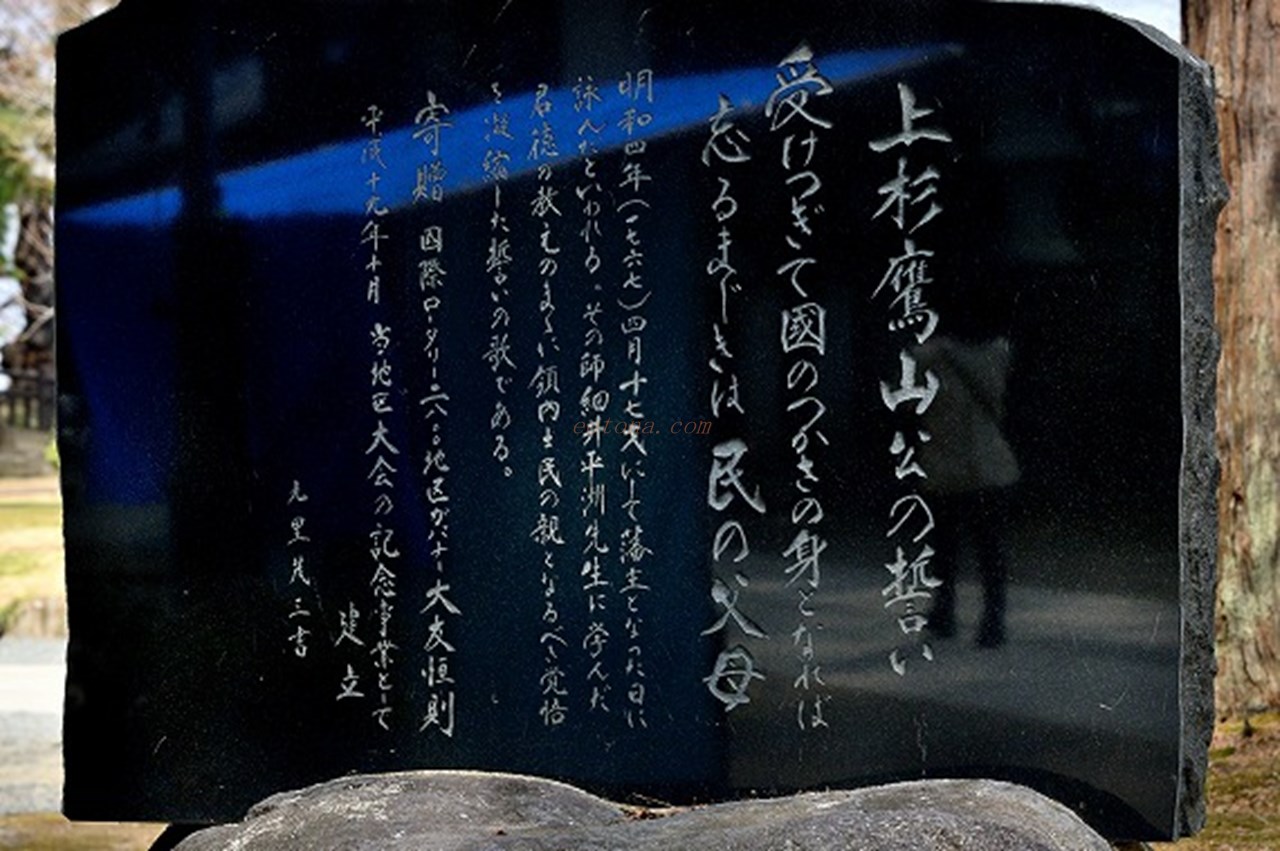 上杉鷹山公の誓い
受けつぎて國のつかさの身となれば
忘るまじきは民の父母
明和四年(一七六七)四月十七才にして藩主となった日に
詠んだといわれる。その師細井平洲先生に学んだ
君徳の教えのまゝに領内士民の親となるべき覚悟
を凝縮した誓いの歌である。
寄贈 国際ロータリー二八〇〇地区ガバナー 大友恒則
平成十九年十月 当地区大会の記念事業として
建立
茂三書
entoea.com